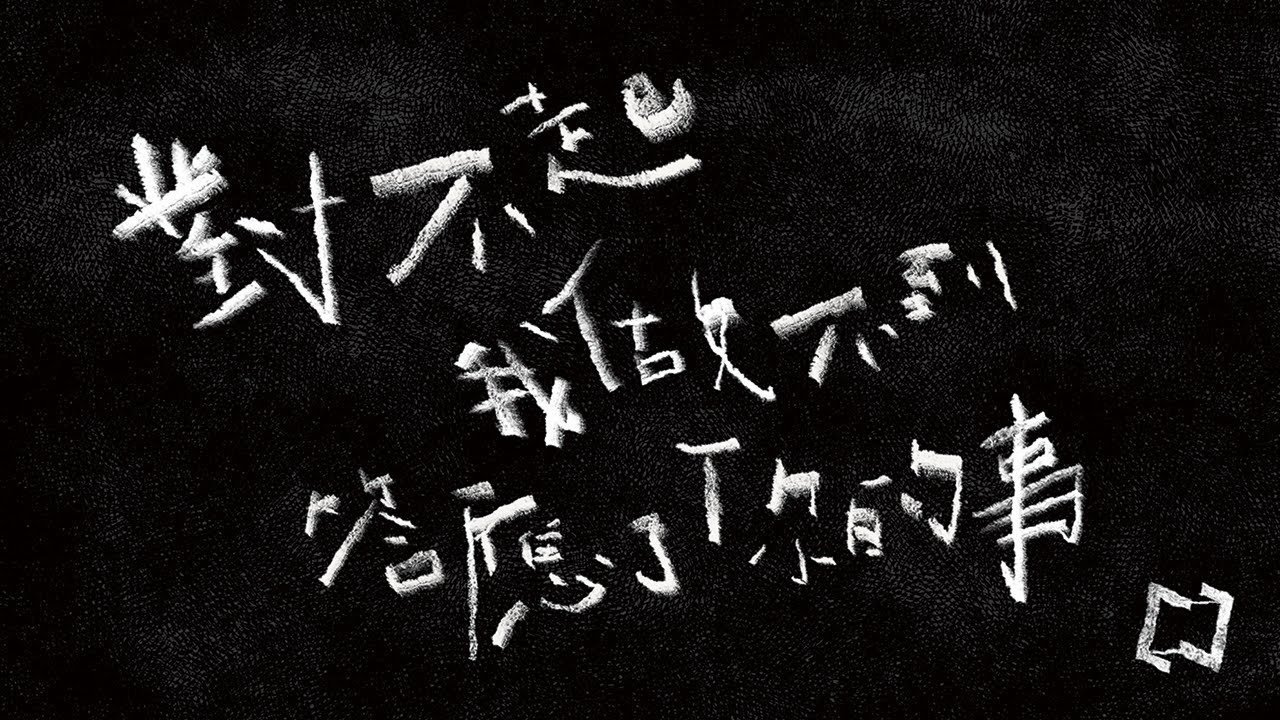 對不起
我做不到
答應了你的事